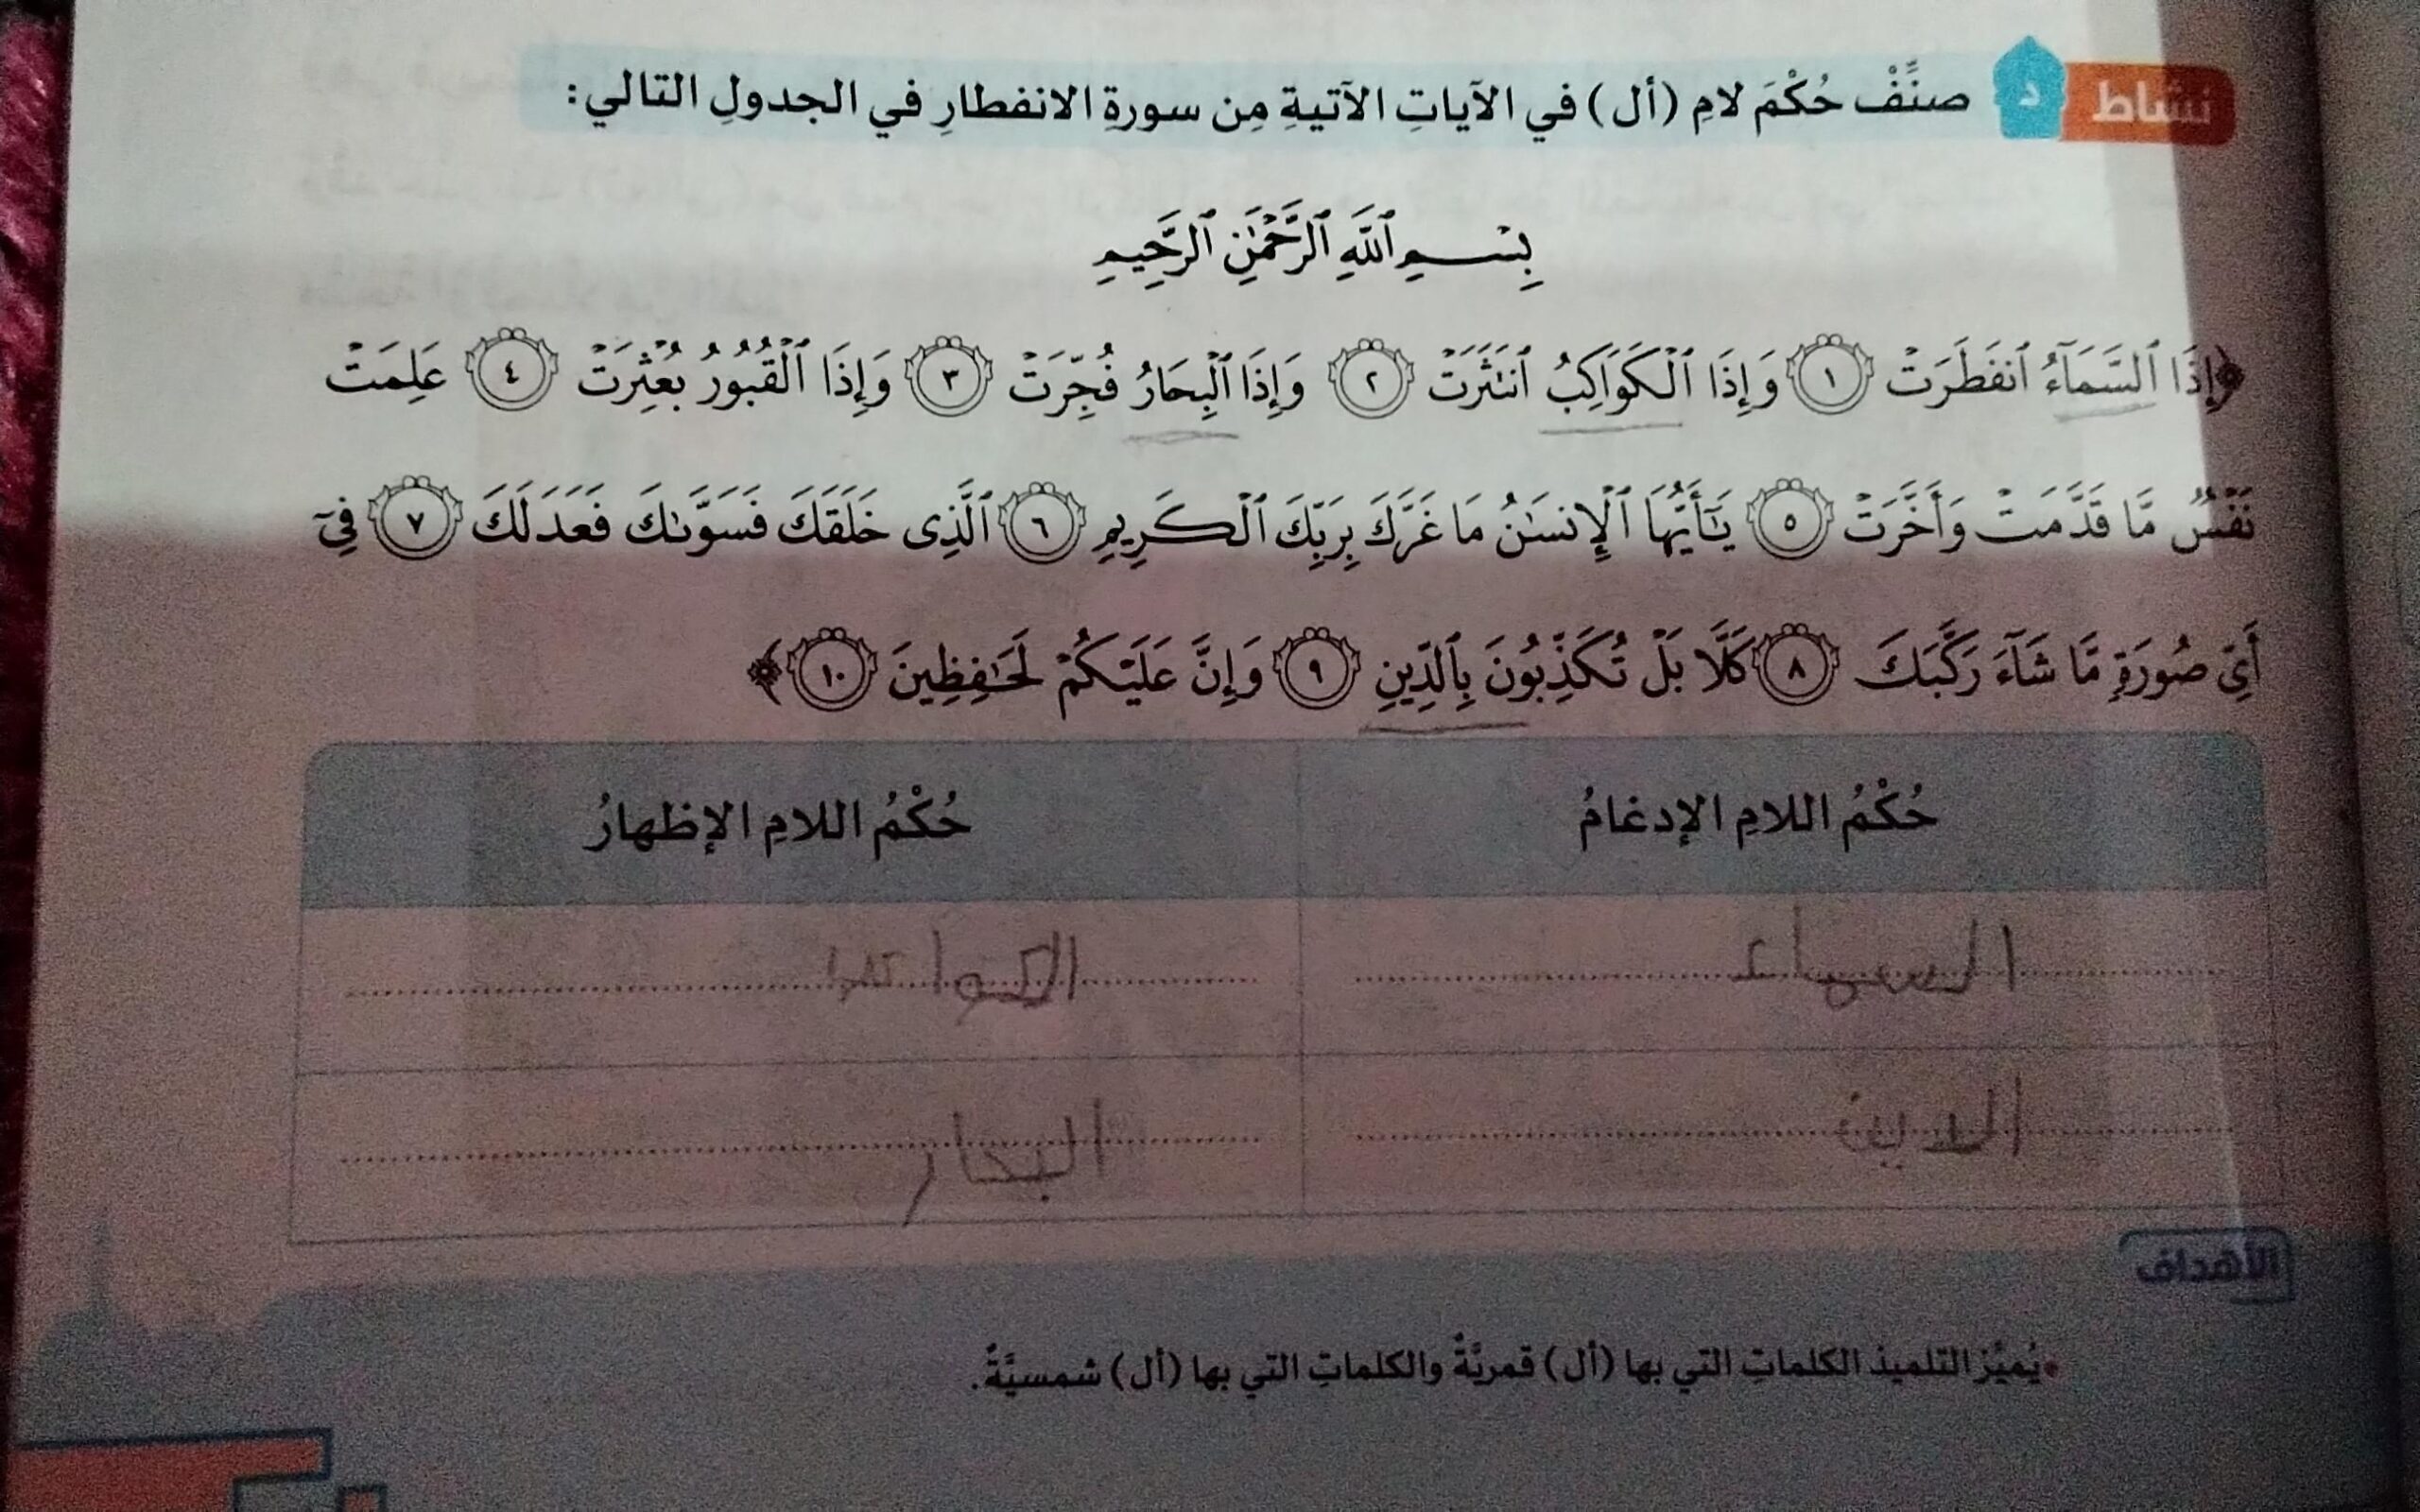 نشاط د صنِّفْ حُكْمَ لامِ (أل) في الآياتِ الآتيةِ مِن سورةِ الانفطارِ في الجدولِ التالي:
بِسْمِ ٱللَّهِ ٱلرَّحْمَٰنِ ٱلرَّحِيمِ
﴿إِذَا ٱلسَّمَآءُ ٱنفَطَرَتْ ١ وَإِذَا ٱلْكَوَاكِبُ ٱنتَثَرَتْ ٢ وَإِذَا ٱلْبِحَارُ فُجِّرَتْ ٣ وَإِذَا ٱلْقُبُورُ بُعْثِرَتْ ٤ عَلِمَتْ
نَفْسٌ مَّا قَدَّمَتْ وَأَخَّرَتْ ٥ يَٰٓأَيُّهَا ٱلْإِنسَٰنُ مَا غَرَّكَ بِرَبِّكَ ٱلْكَرِيمِ ٦ ٱلَّذِى خَلَقَكَ فَسَوَّىٰكَ فَعَدَلَكَ ٧ فِىٓ
أَىِّ صُورَةٍ مَّا شَآءَ رَكَّبَكَ ٨ كَلَّا بَلْ تُكَذِّبُونَ بِٱلدِّينِ ٩ وَإِنَّ عَلَيْكُمْ لَحَٰفِظِينَ ١٠﴾
حُكْمُ اللامِ الإدغامُ حُكْمُ اللامِ الإظهارُ
السماء
الدين البحار
الأهداف
• يُميِّز التلميذ الكلماتِ التي بها (أل) قمريَّةٌ والكلماتِ التي بها (أل) شمسيَّةٌ.